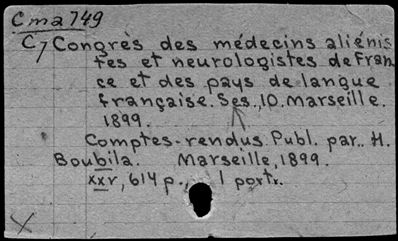 Cma 749
C7 Congrès des médecins aliénis
tes et neurologistes de Fran
ce et des pays de langue
française. Ses. 10. Marseille.
1899.
Comptes-rendus. Publ. par. H.
Boubila. Marseille, 1899.
xxv, 614 p., 1 portr.